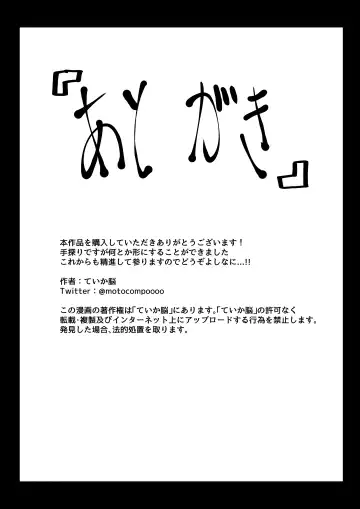 『あとがき』
本作品を購入していただきありがとうございます！
手探りですが何とか形にすることができました
これからも精進して参りますのでどうぞよしなに...!!
作者：ていか脳
Twitter：@motocompoooo
この漫画の著作権は｢ていか脳｣にあります｡｢ていか脳｣の許可なく
転載･複製及びインターネット上にアップロードする行為を禁止します｡
発見した場合､法的処置を取ります｡